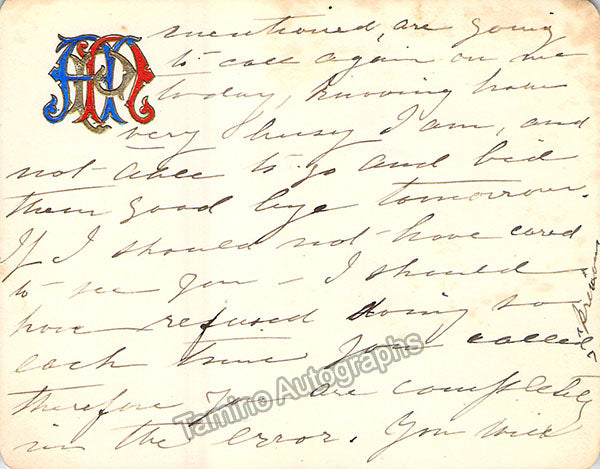 mentioned, are going
to call again on me
today, knowing how
very busy I am, and
not able to go and bid
them good bye tomorrow.
If I should not have cared
to see you – I should
have refused doing so
each time you called
previously
therefore you are completely
in the error. You will
Tamino Autographs